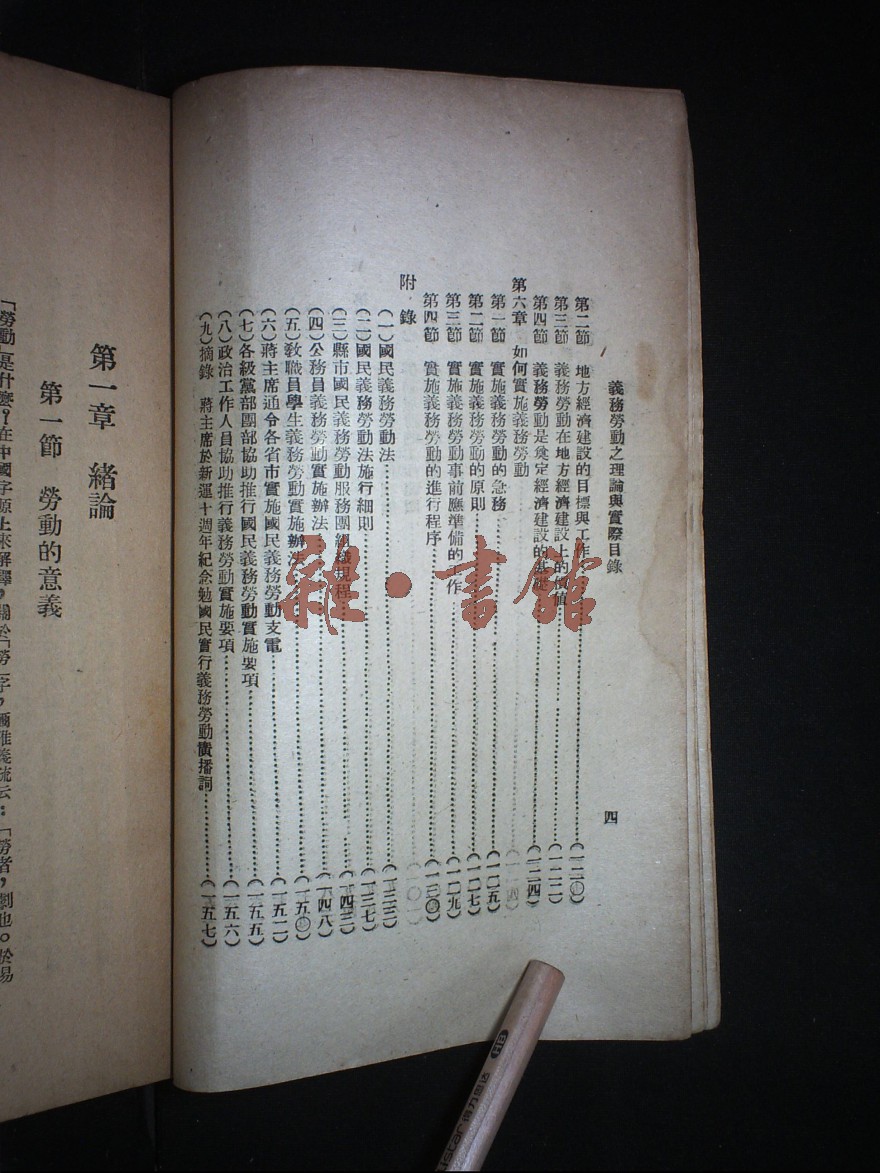 義務勞動之理論與實際目錄
四
第二節 地方經濟建設的目標與工作……(一二〇)
第三節 義務勞動在地方經濟建設上的價值……(一二二)
第四節 義務勞動是奠定經濟建設的基礎……(一二四)
第六章 如何實施義務勞動……(一二四)
第一節 實施義務勞動的急務……(一二五)
第二節 實施義務勞動的原則……(一二七)
第三節 實施義務勞動事前應準備的工作……(一二九)
第四節 實施義務勞動的進行程序……(一三〇)
附 錄
(一)國民義務勞動法……(一三三)
(二)國民義務勞動法施行細則……(一三七)
(三)縣市國民義務勞動服務團組織規程……(一四三)
(四)公務員義務勞動實施辦法……(一四八)
(五)教職員學生義務勞動實施辦法……(一五〇)
(六)蔣主席通令各省市實施國民義務勞動支電……(一五二)
(七)各級黨部團部協助推行國民義務勞動實施要項……(一五五)
(八)政治工作人員協助推行義務勞動實施要項……(一五六)
(九)摘錄 蔣主席於新運十週年紀念勉國民實行義務勞動廣播詞……(一五七)
第一章 緒論
第一節 勞動的意義
「勞動」是什麼?在中國字源上來解釋,關於「勞」字,爾雅義疏云:「勞者,劇也。於易
雜·書館
HB